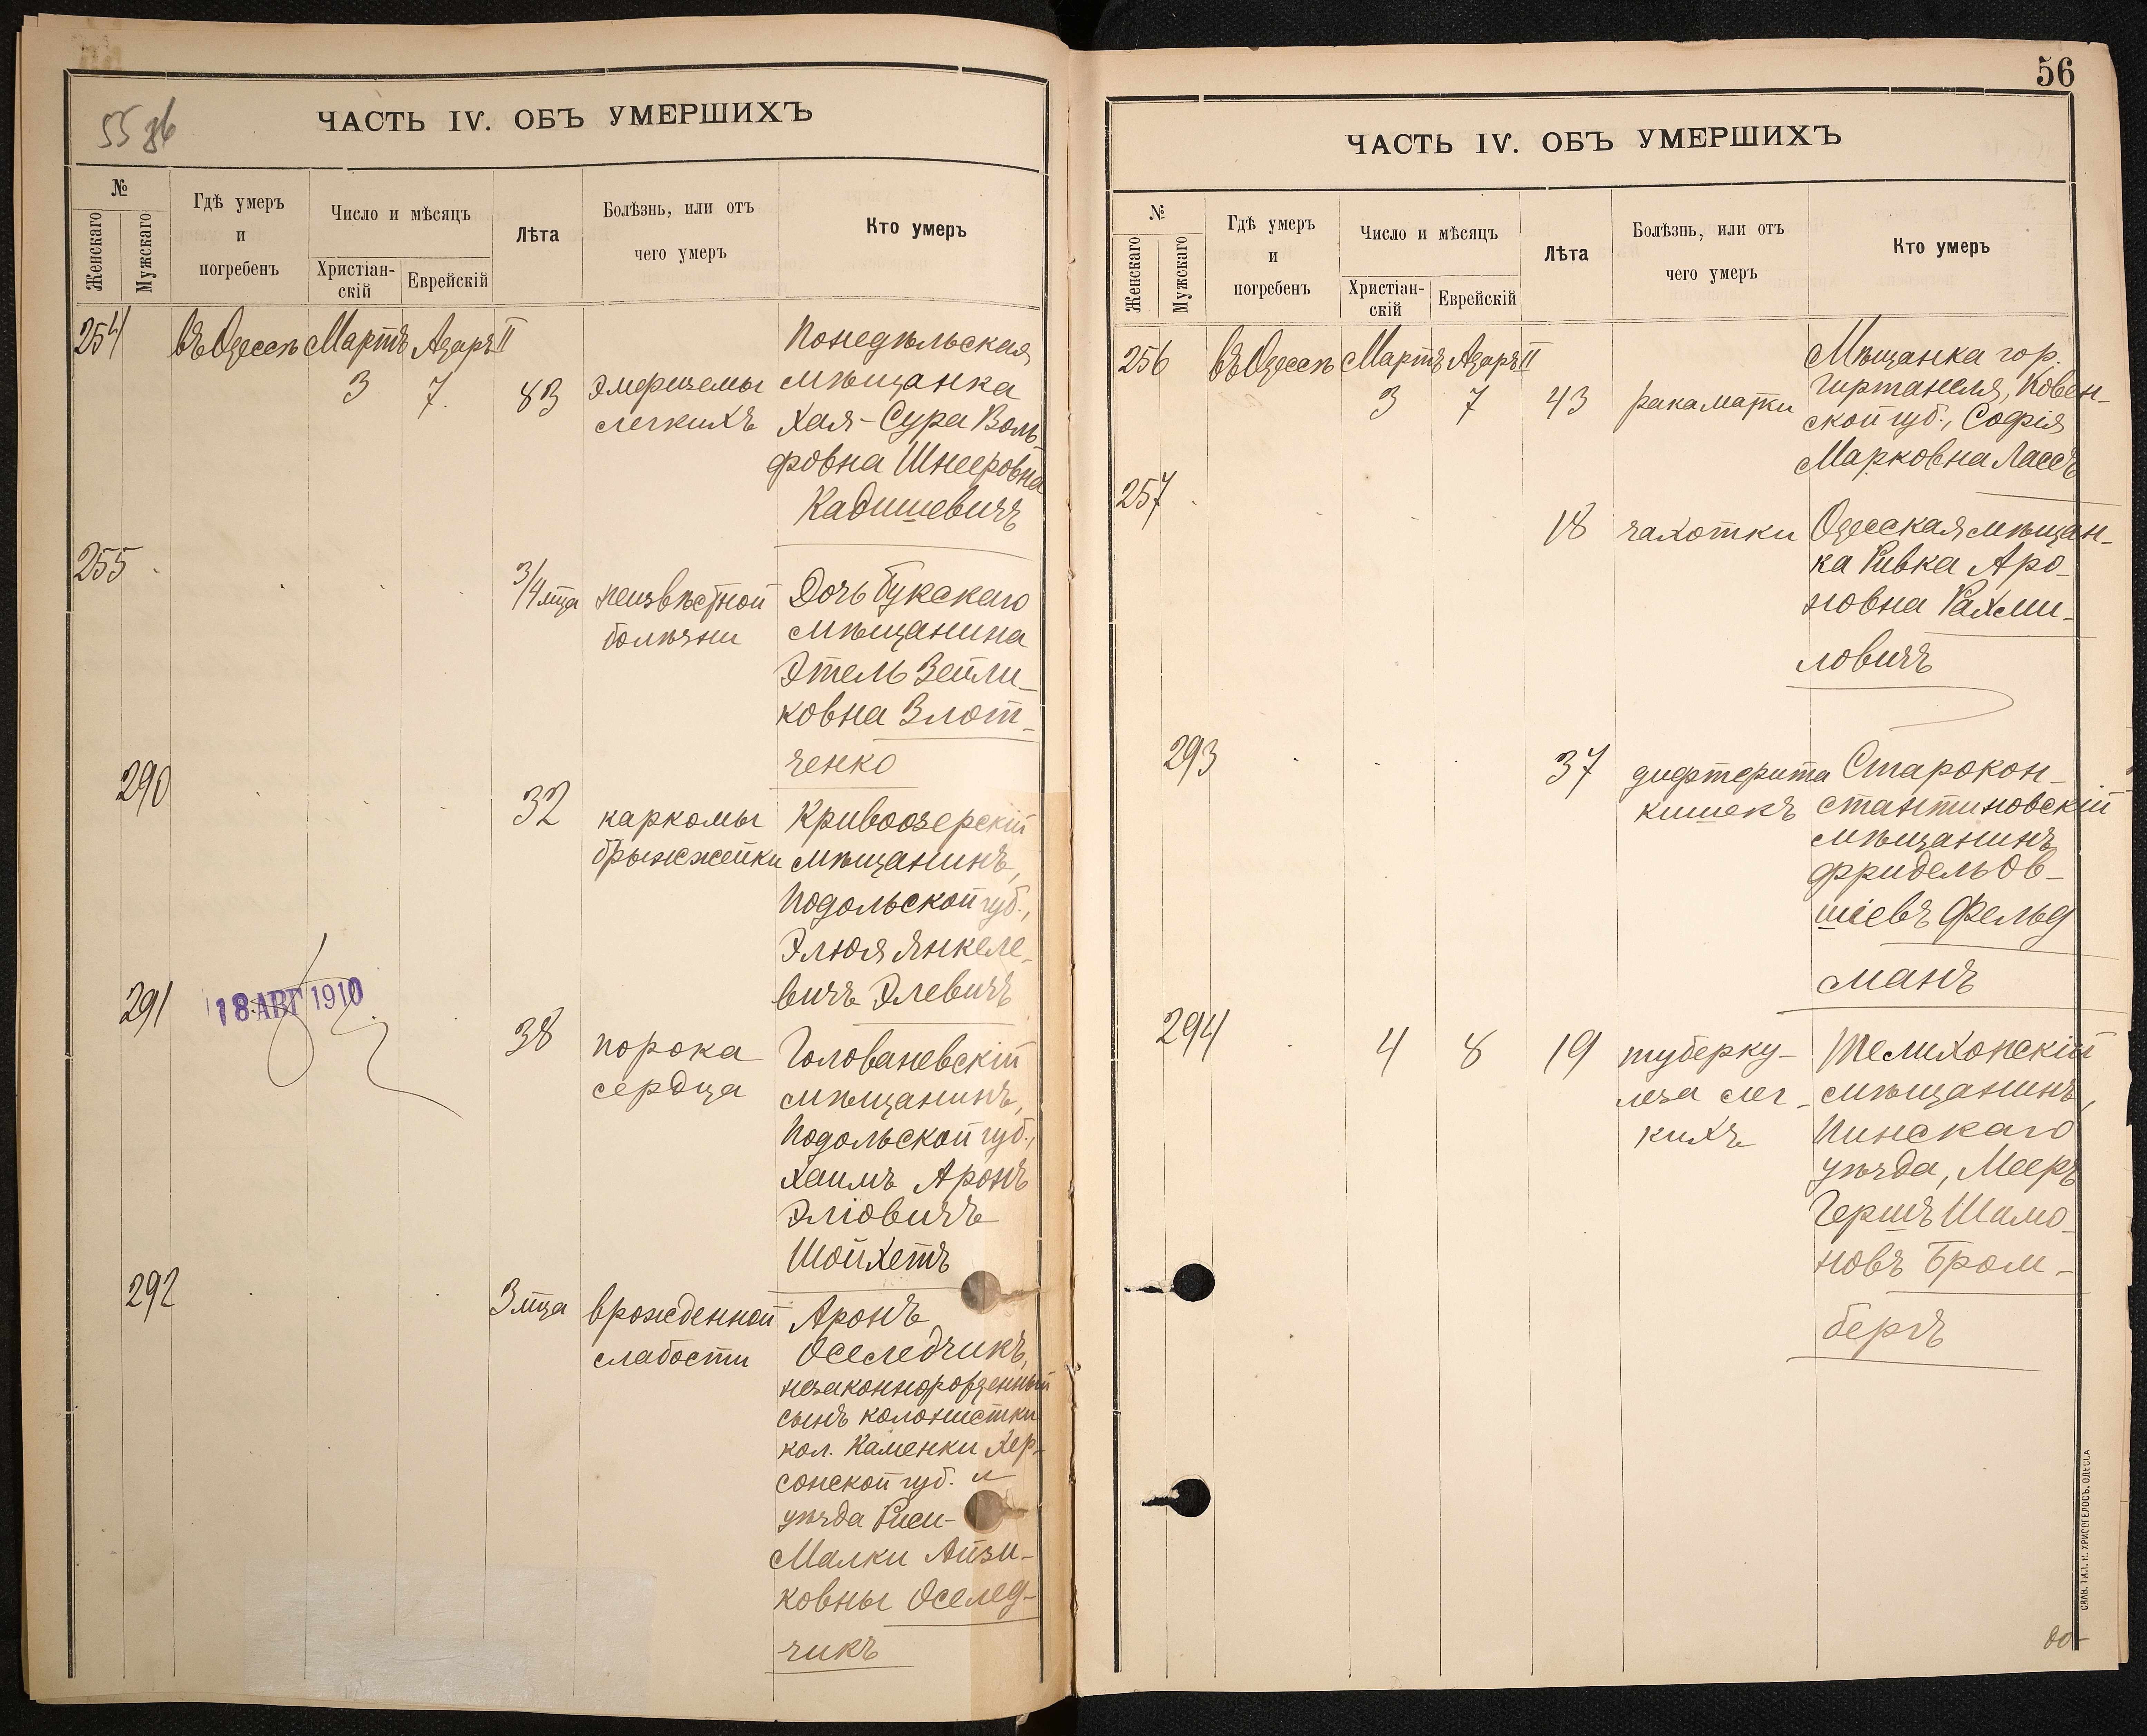 55 зв
ЧАСТЬ IV. ОБЪ УМЕРШИХЪ
№
Женскаго
Мужскаго
Гдѣ умеръ
и
погребенъ
Число и мѣсяцъ
Христіан-
скій
Еврейскій
Лѣта
Болѣзнь, или отъ
чего умеръ
Кто умеръ
254
въ Одессѣ
Мартъ
3
Адаръ II
7
83
эмфиземы
легкихъ
Понедѣльская
мѣщанка
Хая-Сура Воль-
фовна Шнееровна
Кадишевичъ
255
3/4 мца
неизвѣстной
болѣзни
Дочь Букскаго
мѣщанина
Этель Зейли-
ковна Злот-
ченко
290
32
каркомы
брыжжейки
Кривоозерскій
мѣщанинъ,
Подольской губ.,
Элюя Янкеле-
вичъ Элевичъ
291
18 АВГ 1910
38
порока
сердца
Голованевскій
мѣщанинъ,
Подольской губ.,
Хаимъ Аронъ
Эліовичъ
Шойхетъ
292
3 мца
врожденной
слабости
Аронъ
Оселедчикъ,
незаконнорожденный
сынъ колонистки
кол. Каменки Хер-
сонской губ. и
уѣзда Риси-
Малки Айзи-
ковны Оселед-
чикъ
56
ЧАСТЬ IV. ОБЪ УМЕРШИХЪ
№
Женскаго
Мужскаго
Гдѣ умеръ
и
погребенъ
Число и мѣсяцъ
Христіан-
скій
Еврейскій
Лѣта
Болѣзнь, или отъ
чего умеръ
Кто умеръ
256
въ Одессѣ
Мартъ
3
Адаръ II
7
43
рака матки
Мѣщанка гор.
Гиртанеля, Ковен-
ской губ., Софія
Марковна Лассъ
257
18
чахотки
Одесская мѣщан-
ка Ривка Аро-
новна Рахми-
ловичъ
293
37
дифтерита
кишекъ
Старокон-
стантиновскій
мѣщанинъ
Фридель Ов-
шіевъ Фельд
манъ
294
4
8
19
туберку-
леза лег-
кихъ
Телиханскій
мѣщанинъ,
Пинскаго
уѣзда, Мееръ
Гершъ Шимо-
новъ Бром-
бергъ
СЛАВ. ТИП. Н. ХРИСОГЕЛОСЪ. ОДЕССА